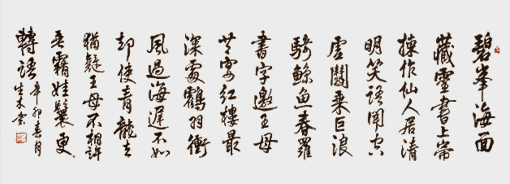 碧峯海面
藏靈書上帝
揀作仙人居清
明笑語聞空
虛鬭乘巨浪
騎鯨魚春羅
書字邀王母
共宴紅樓最
深處鶴羽衝
風過海遲不如
却使青龍去
猶疑王母不相許
垂霧娃鬟更
轉語 辛卯春月